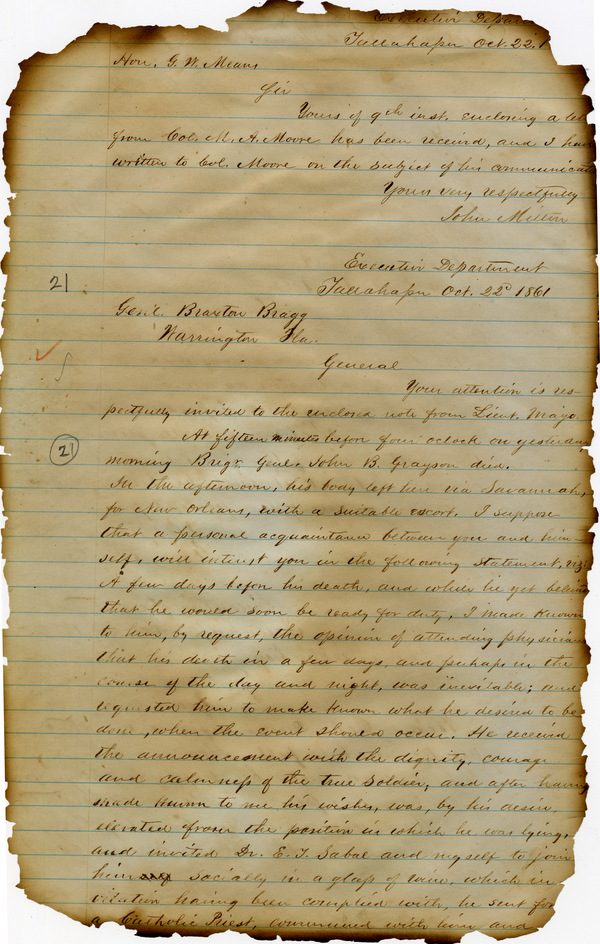 Executive Depar
Tallahassee Oct. 22.
Hon. G. W. Means
Sir
Yours of 9th inst. enclosing a let
from Col. M. A. Moore has been received, and I have
written to Col. Moore on the subject of his communicat
Yours very respectfully
John Milton
Executive Department
Tallahassee Oct. 22d 1861
21
Genl. Braxton Bragg
Warrington Fla.
General
Your attention is res-
pectfully invited to the enclosed note from Lieut. Mayo.
21
At fifteen minutes before four oclock on yesterday
morning Brigr. Genl. John B. Grayson died.
In the afternoon, his body left here via Savannah,
for New Orleans, with a suitable escort. I suppose
that a personal acquaintance between you and him-
self, will interest you in the following statement, viz:
A few days before his death, and while he yet believed
that he would soon be ready for duty, I made known
to him, by request, the opinion of attending physicians
that his death in a few days, and perhaps in the
course of the day and night, was inevitable; and
requested him to make known what he desired to be
done, when the event should occur. He received
the announcement with the dignity, courage
and calmness of the true Soldier, and after having
made known to me his wishes, was, by his desire,
elevated from the position in which he was lying,
and invited Dr. E. T. Sabal and myself to join
him socially in a glass of wine, which in
vitation having been complied with, he sent for
a Catholic Priest, communed with him and